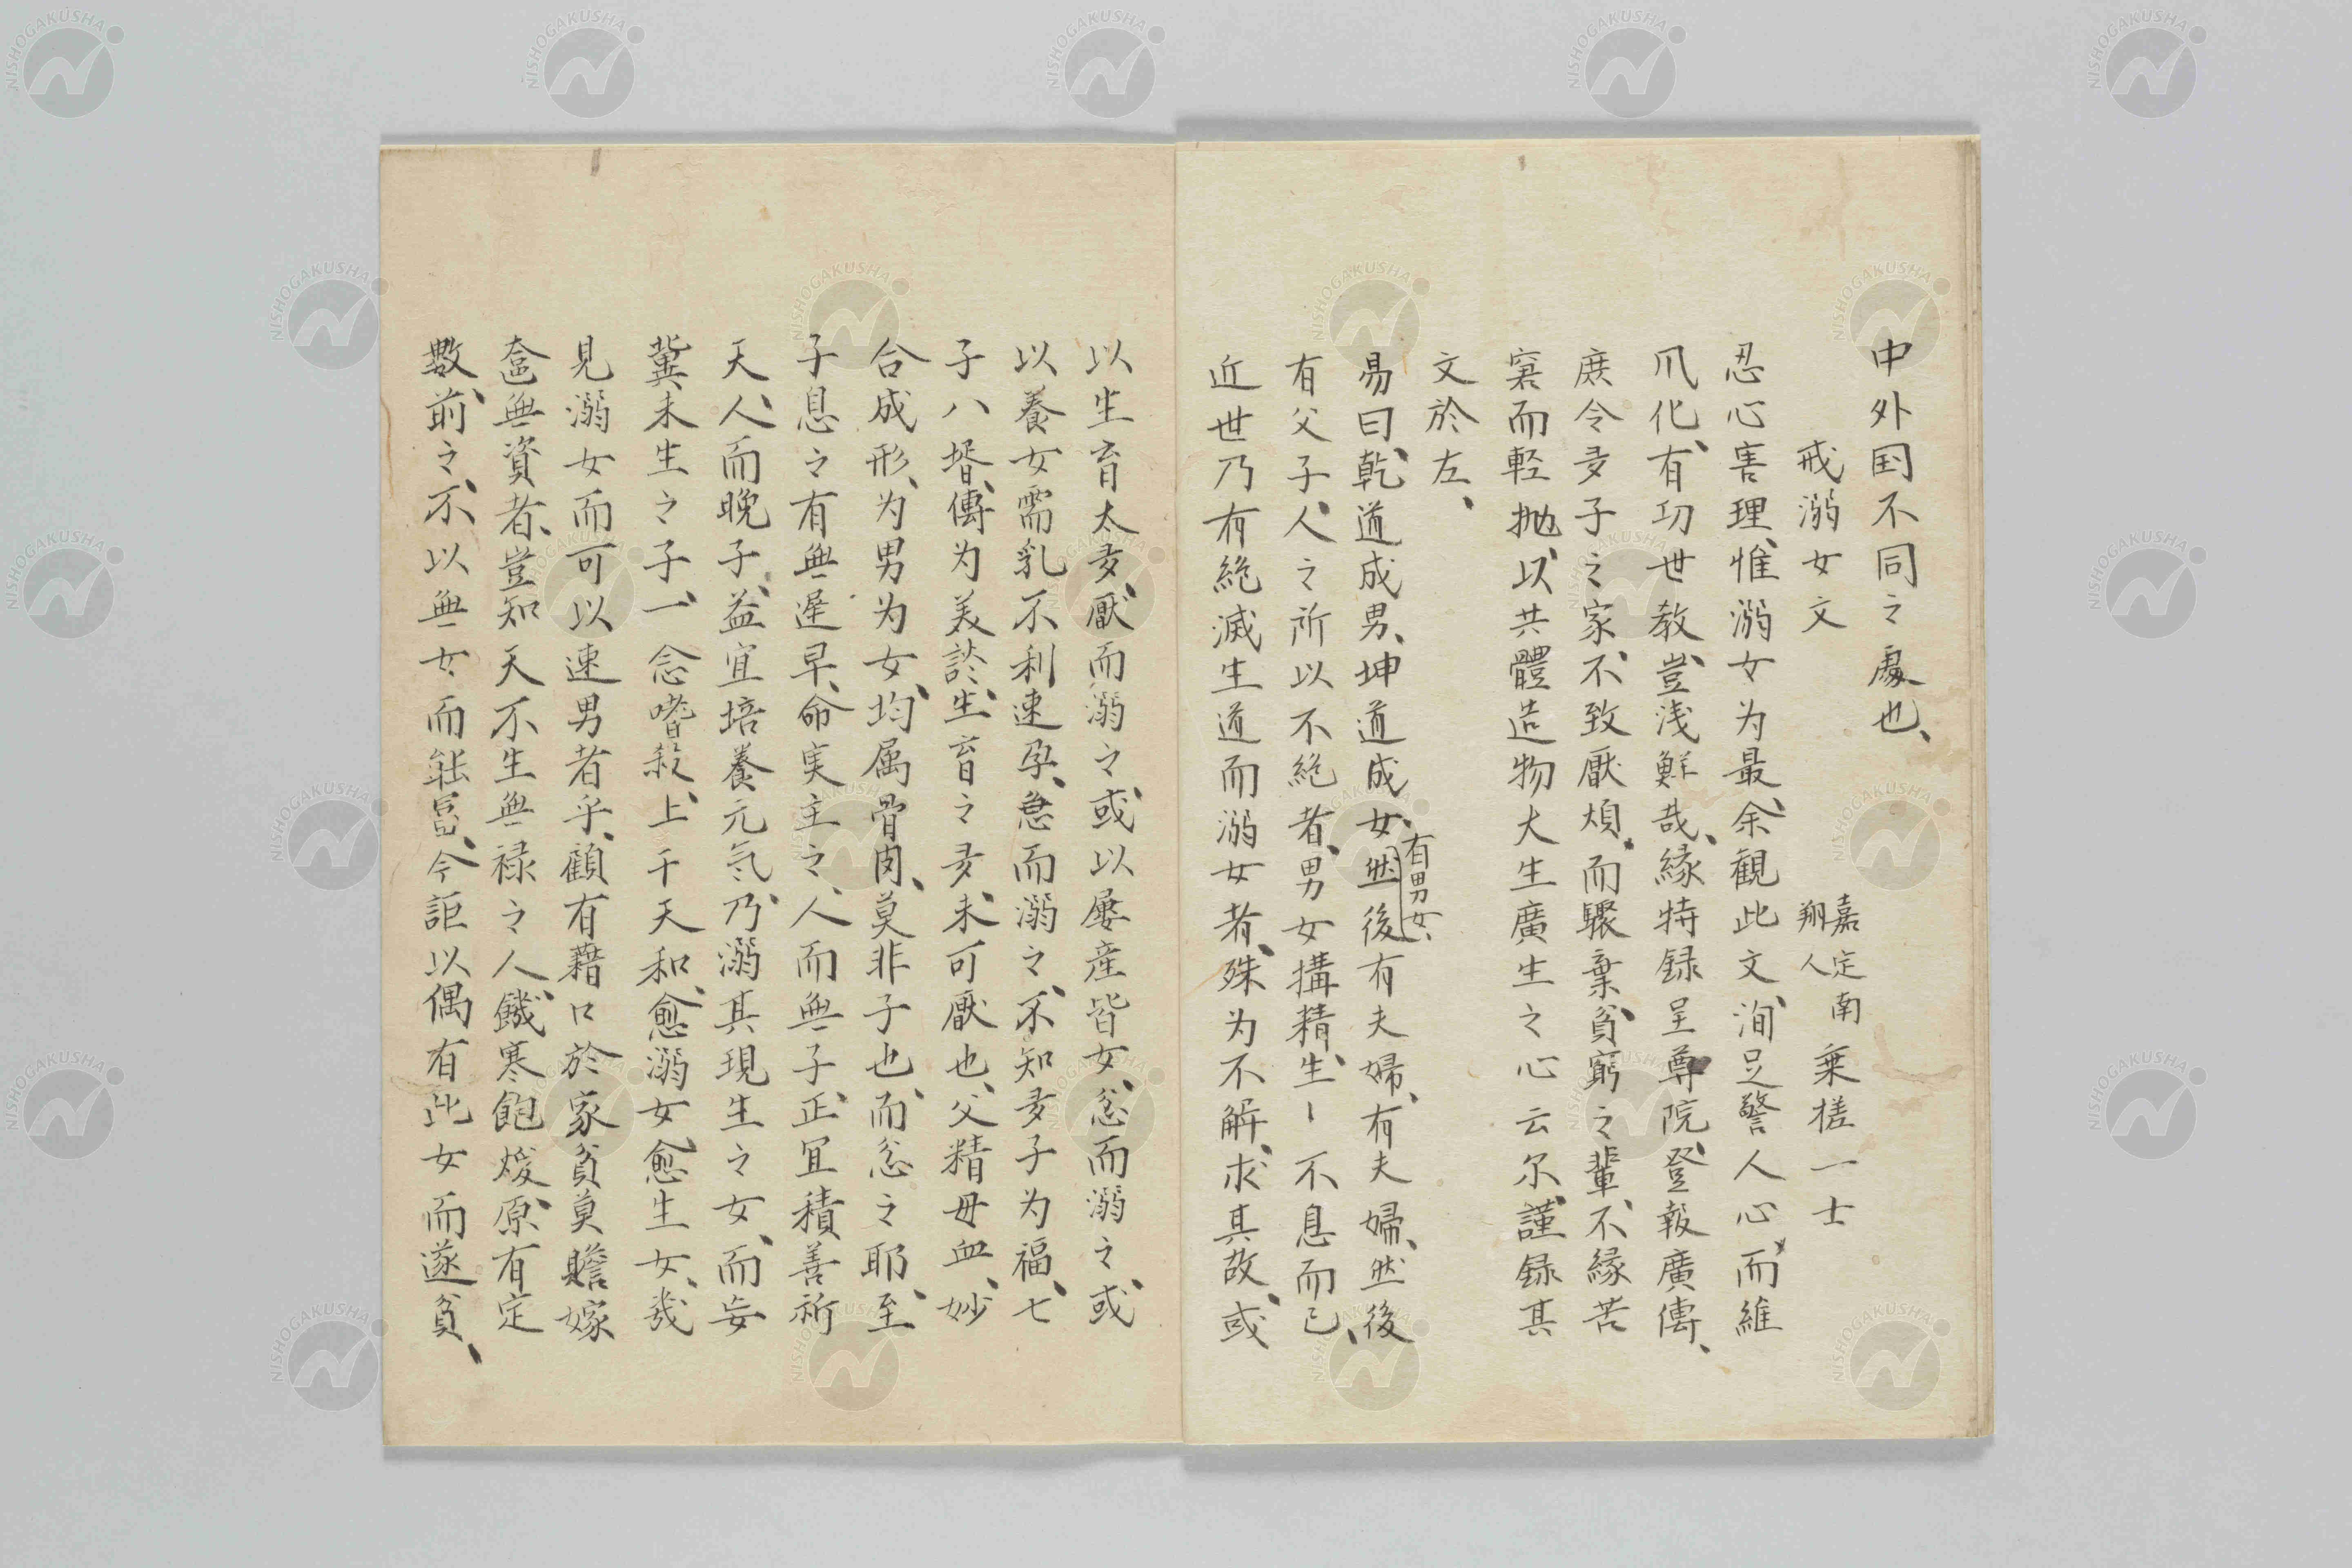 中外国不同之處也、
戒溺女文　嘉定南翔人　乗槎一士
忍心害理、惟溺女为最、余観此文、洵足警人心、而維
爪化、有功世教、豈浅鮮哉、縁特録呈尊院、登報廣傳、
庶令多子之家、不致厭煩、而驟棄、貧窮之輩、不縁苦
窘而軽抛、以共體造物大生廣生之心云尓、謹録其
文於左、
易曰、乾道成男、坤道成女、有男女、然後有夫婦、有夫婦、然後
有父子、人之所以不絶者、男女搆精、生〻不息而已、
近世乃有絶滅生道而溺女者、殊为不解、求其故、或
以生育太多、厭而溺之、或以屡産皆女、忿而溺之、或
以養女需乳不利速孕、急而溺之、不知多子为福、七
子八壻、傳为美談、生育之多、未可厭也、父精母血、妙
合成形、为男为女、均属骨肉、莫非子也、而忿之耶、至
子息之有無遅早、命実主之、人而無子、正宜積善祈
天、人而晩子、益宜培養元気、乃溺其現生之女、而妄
冀未生之子、一念嗜殺、上干天和、愈溺女愈生女、幾
見溺女而可以速男者乎、顧有藉口於家貧莫贍嫁
奩無資者、豈知天不生無禄之人、饑寒飽煖、原有定
數、前之、不以無女而能富、今詎以偶有此女而遂貧、